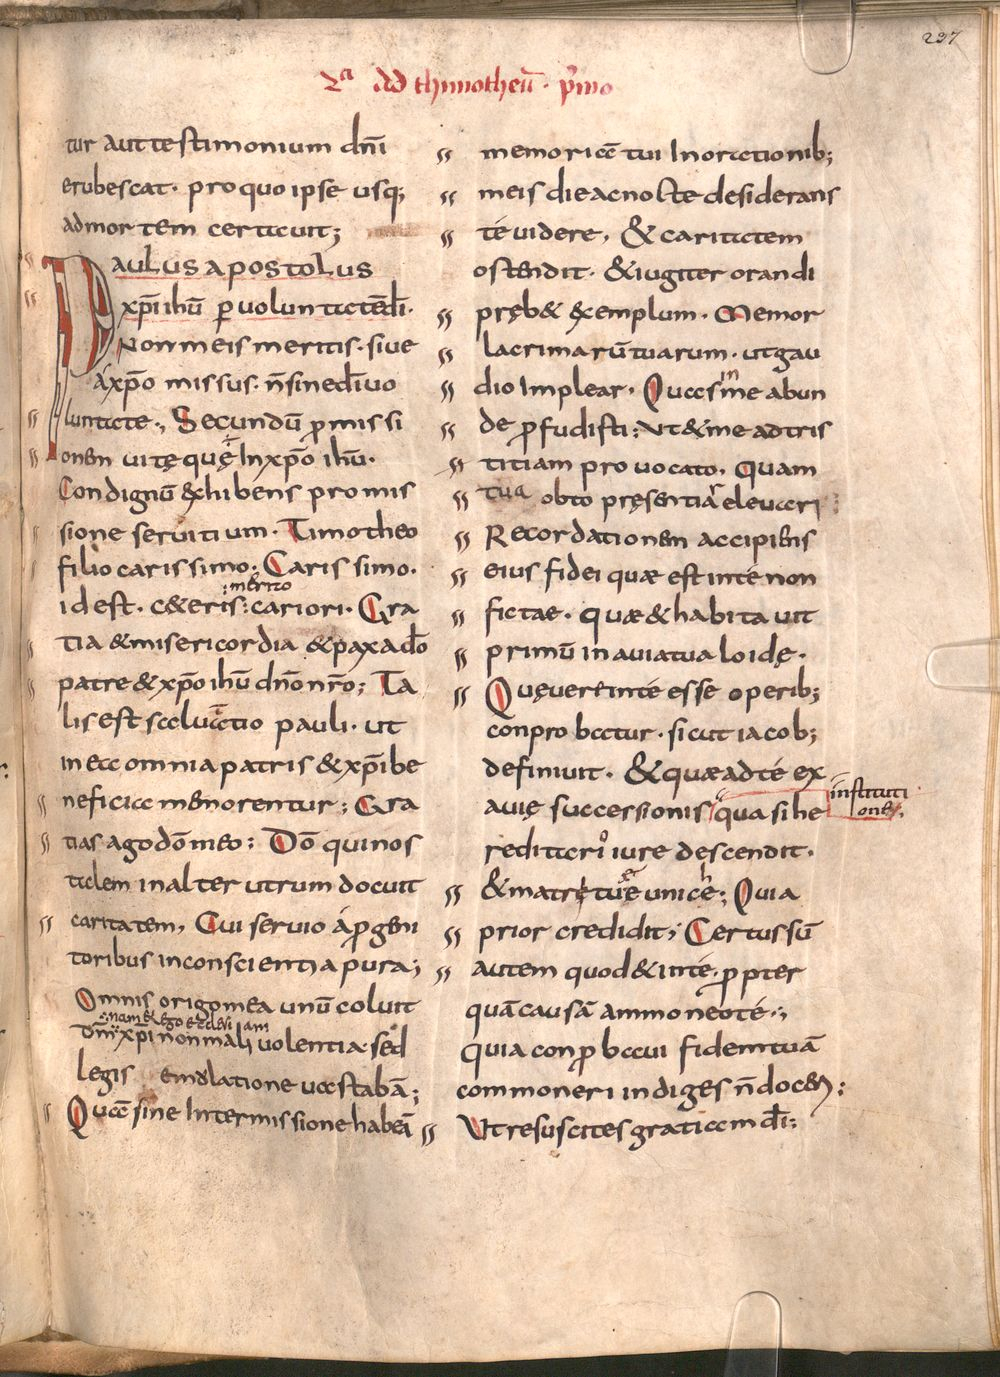 237
2a Ad thimotheū · pͥmo
tur aut testimonium dn̄i
erubescat · pro quo ipse usq;
ad mortem certauit;
PAULUS apostolus
xp̄i ihū ꝑ uoluntatē dī ·
Non meis meritis · siue
á xp̄o missus · n̄ sine dī uo
luntate ·, Secundū ꝓmissi
onem uitę quę est In xp̄o ihū ·
Condignū exhibens promis
sione seruitium · Timotheo
filio carissimo; Carissimo ·
id est · ceteris : cariori · Gra
: merito
tia & misericordia & pax a dō
patre & xp̄o ihū dn̄o nr̄o; Ta
lis est saluatio pauli · ut
in ea omnia patris & xp̄i be
neficia memorentur; Gra
tias ago dō meo : Dō qui nos
talem in alterutrum docuit
caritatem, Cui seruio á ꝓgeni
toribus in conscientia pura;
Omnis origo mea unū coluit
: nam et ego ecclesiam
dm̄ : xp̄i non maliuolentia sed
legis emulatione uastabā;
Quā sine Intermissione habeā
memoriā tui In orationib;
meis die ac nocte desiderans
té uidere, & caritatem
ostendit · & iugiter orandi
pręb& exemplum · Memor
lacrimarū tuarum · ut gau
dio Implear · Quas in me abun
de ꝓfudisti; Ut & me ad tris
titiam prouocato, Quam
tua obto pręsentia releuari;
Recordationem accipiens
eius fidei quæ est in té non
fictae · quæ & habitauit
primū in auia tua loidę ·
Quę uere in té esse operib;
conprobatur · sicut iacob;
definiuit · & quæ ad té ex
auię successionis quasi he
instituti
one,
reditario iure descendit ·
& matre tuę eunichę; Quia
prior credidit; Certus sū
autem quod & in té · ꝓpter
quā causā ammoneo té ·,
quia conꝓbaui fidem tuā
commoneri indiges n̄ doceri;
Ut resuscites gratiam dī;